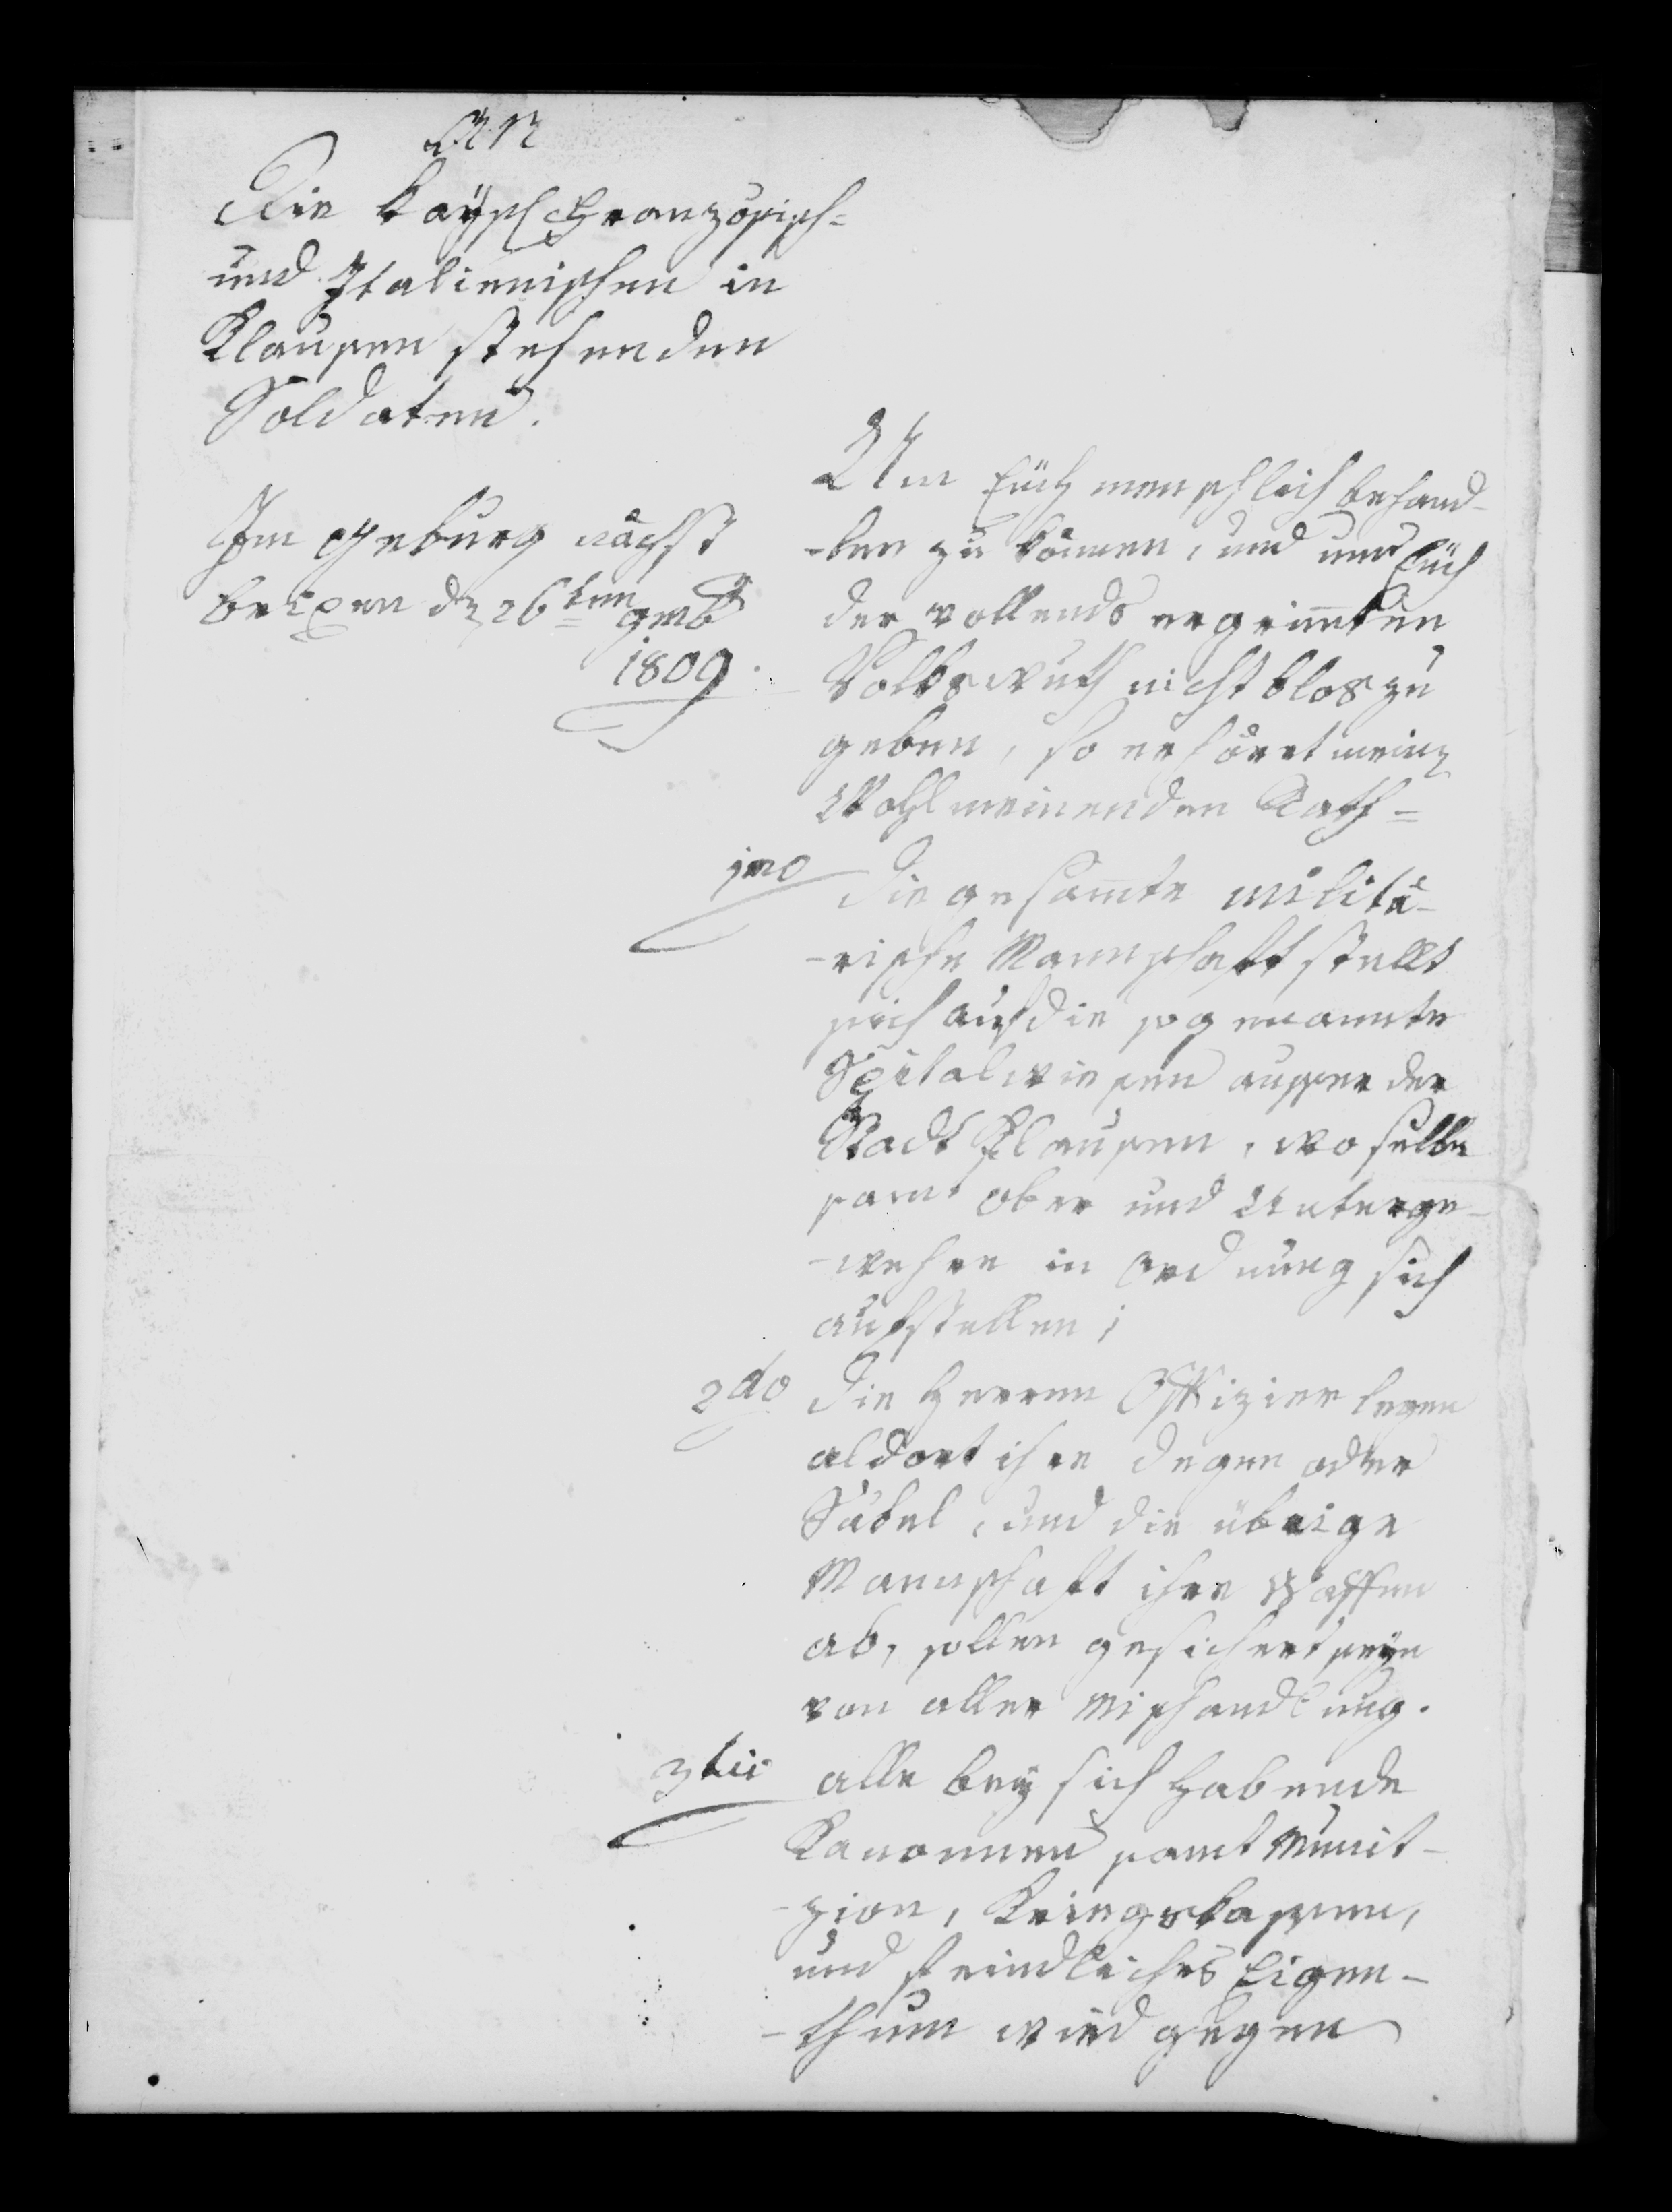 An
Die Kaÿsl Französisch=
und Italienischen in
Klausen stehenden
Soldaten.
Im Geburg nächst
brixen dn 26ten 9mb
1809.
Um Euch menschlich behand-
-len zu können, und um Euch
der vollends ergrim̄ten
Volkswuth nicht blos zu
geben, so erhöret mein
Wohlmeinenden Rath=
1mo die gesam̄te militä-
-rische Mannschaft stellt
sich auf die sogenannte
Spitalwiesen ausser der
Stadt Klausen, wo selbe
samt Ober und Unterge-
-wehre in Ordnung sich
aufstellen;
2do die Herren Offizier legen
aldort ihre degen oder
Säbel, und die übrige
Mannschaft ihre Waffen
ab, sollen gesichert seÿn
von aller Mishandlung.
3tii alle beÿ sich habende
Kanonnen samt Munit-
-zion, Kriegskassen,
und feindliches Eigen-
-thum wird gegen